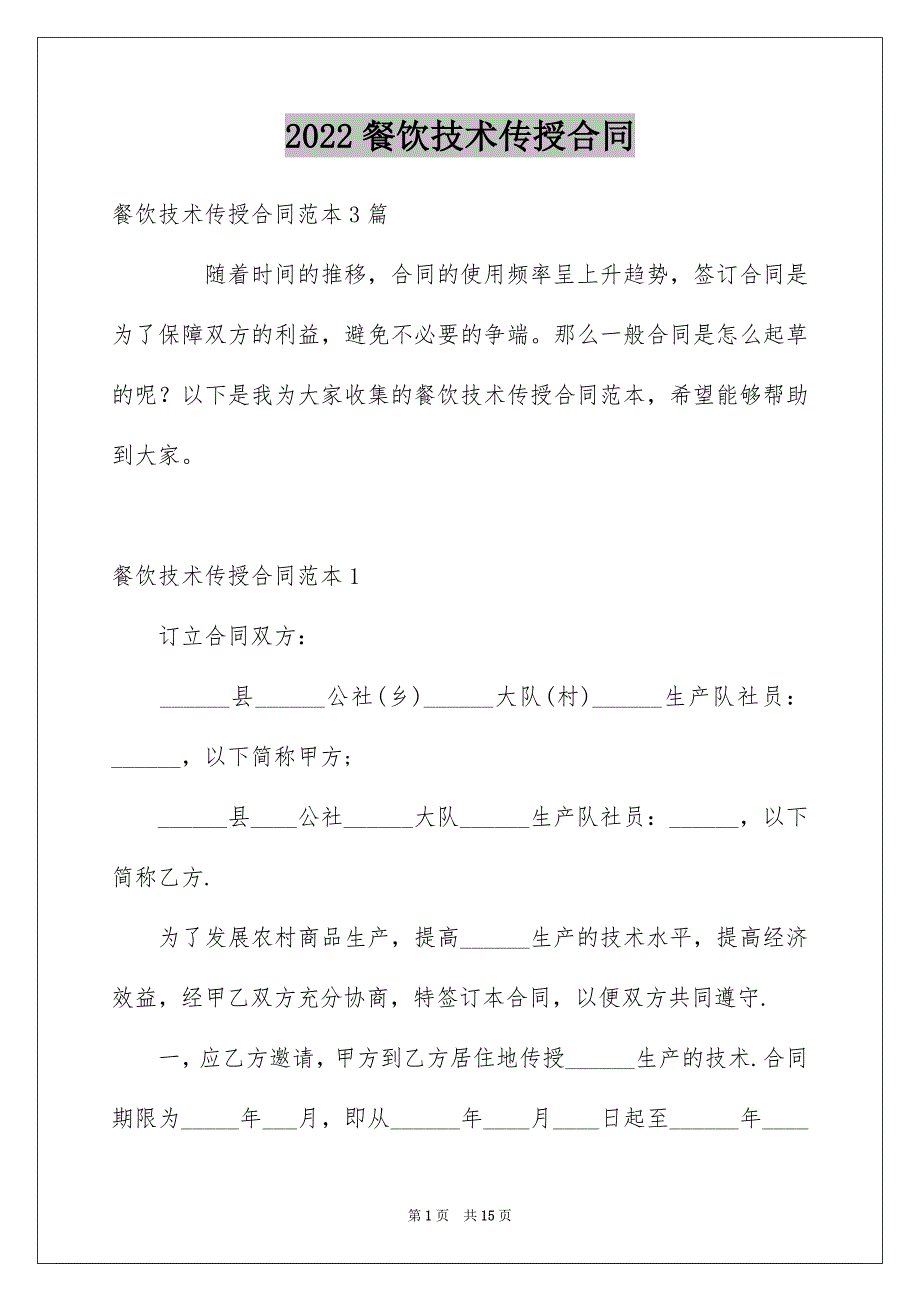 2022餐饮技术传授合同
餐饮技术传授合同范本3篇
随着时间的推移，合同的使用频率呈上升趋势，签订合同是
为了保障双方的利益，避免不必要的争端。那么一般合同是怎么起草
的呢？以下是我为大家收集的餐饮技术传授合同范本，希望能够帮助
到大家。
餐饮技术传授合同范本1
订立合同双方：
______县______公社(乡)______大队(村)______生产队社员：
______，以下简称甲方;
______县____公社______大队______生产队社员：______，以下
简称乙方.
为了发展农村商品生产，提高______生产的技术水平，提高经济
效益，经甲乙双方充分协商，特签订本合同，以便双方共同遵守.
一，应乙方邀请，甲方到乙方居住地传授______生产的技术.合同
期限为_____年___月，即从______年____月____日起至______年____
第1页 共15页